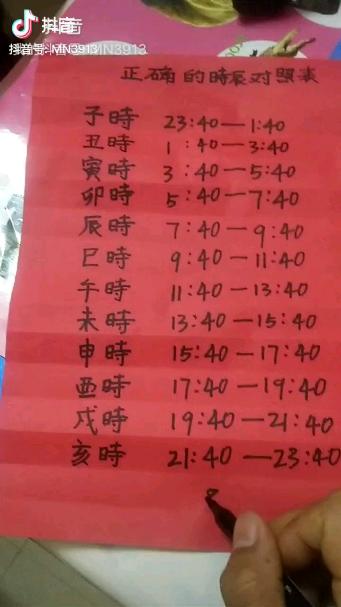 抖音
抖音号: MN3913
正确的時辰对照表
子時 23:40—1:40
丑時 1:40—3:40
寅時 3:40—5:40
卯時 5:40—7:40
辰時 7:40—9:40
巳時 9:40—11:40
午時 11:40—13:40
未時 13:40—15:40
申時 15:40—17:40
酉時 17:40—19:40
戌時 19:40—21:40
亥時 21:40—23:40